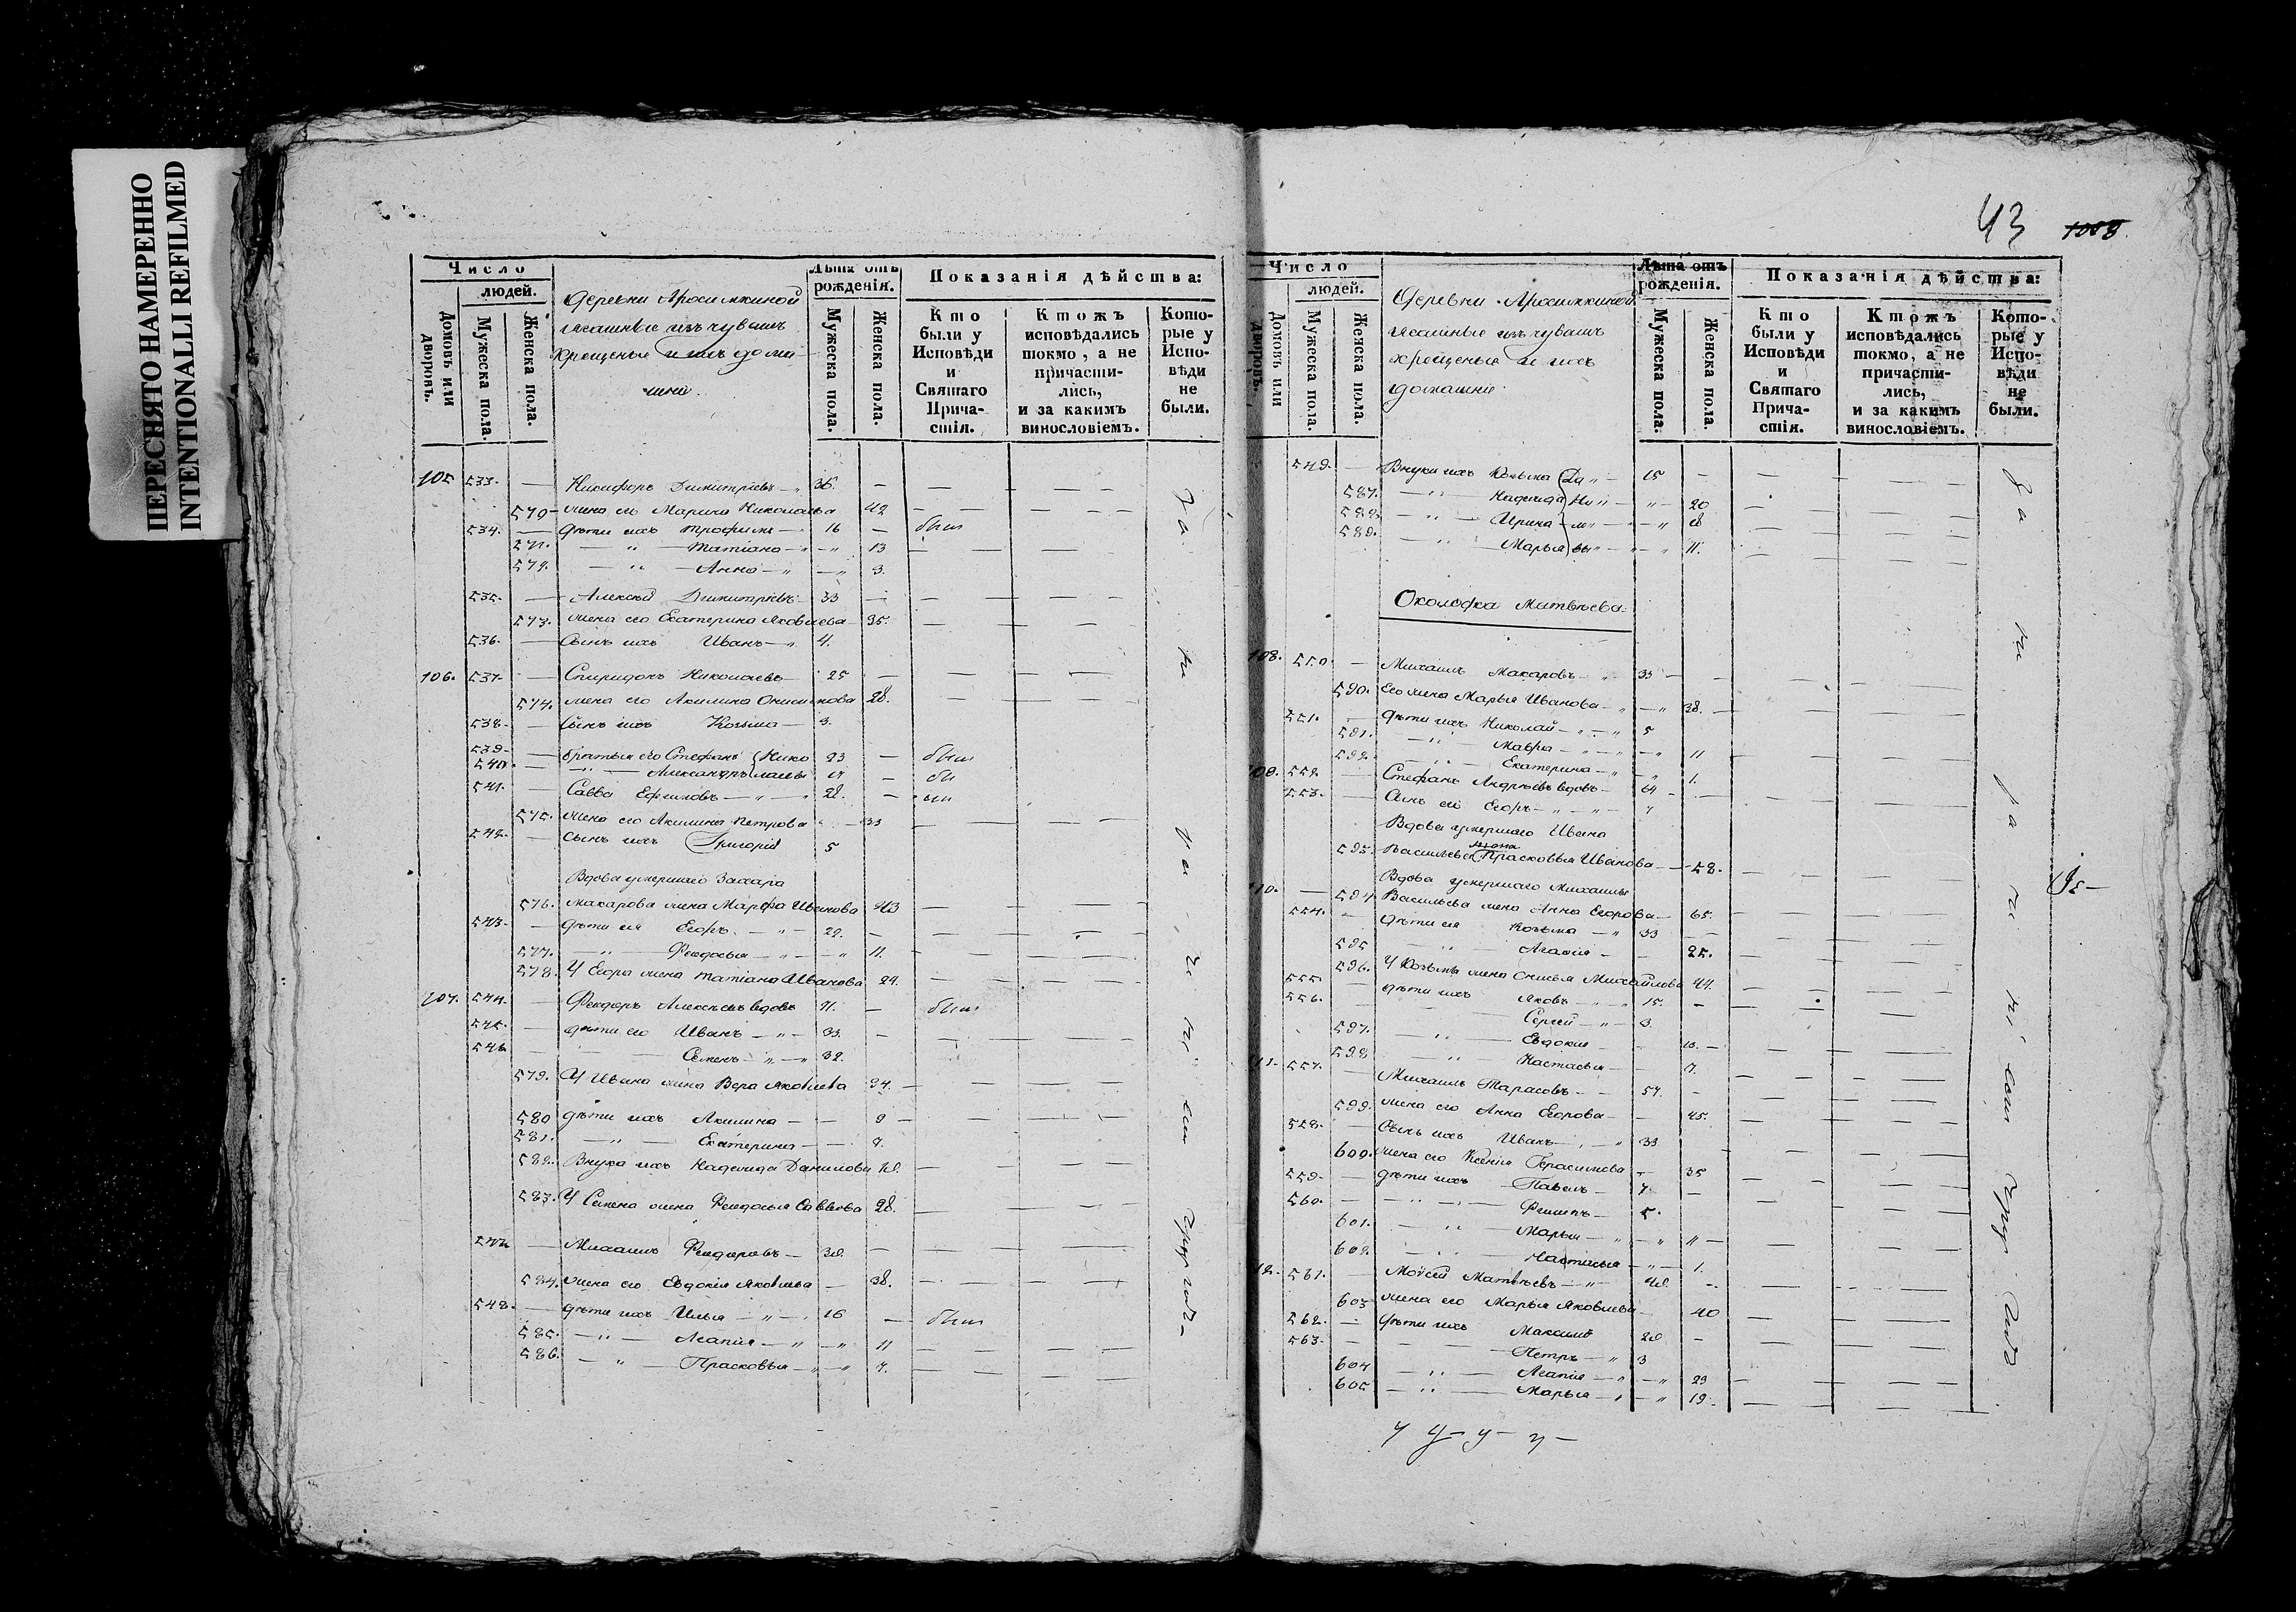 ПЕРЕСНЯТО НАМЕРЕННО
INTENTIONALLI REFILMED
43 1003
Число
людей.
Домовъ или дворовъ.
Мужеска пола.
Женска пола.
Деревни
изъ чувашъ
крещеные и ихъ домашніе.
Лѣта отъ рожденія.
Мужеска пола.
Женска пола.
Показанія дѣйства:
Кто были у Исповѣди и Святаго Причастія.
Ктожъ исповѣдались токмо, а не причастились, и за какимъ винословіемъ.
Которые у Исповѣди не были.
105 533. — Никифоръ Димитріевъ — 36. —
570 — жена его Марина Николаева 42
534. — дѣти ихъ Трофимъ — 16 — были
571. — Татіана — 13
572. — Анна — 3.
535. — Алексѣй Димитріевъ — 33 —
573. жена его Екатерина Яковлева — 35.
536. — Сынъ ихъ Иванъ — 4.
106. 537. — Спиридонъ Николаевъ — 25 —
574. жена его Акилина 28.
538. — Сынъ ихъ Козьма — 3.
539. — братья его Стефанъ Нико 23 — были
540. — Александръ лаевы
541. — Савва Ефимовъ — 28. —
575. жена его Акилина Петрова — 33
542. — Сынъ ихъ Григорій 5
Вдова умершаго Захара
576. Макарова жена Марфа Иванова 43
543. — дѣти ея Егоръ — 22. —
577. — Феодосья — 11.
578. У Егора жена Татіана Иванова 24.
107. 544. — Феодоръ Алексѣевъ вдовъ 71. — были
545. — дѣти его Иванъ — 33. —
546 — Семенъ — 32.
579. У Ивана жена Вера Яковлева 34.
580 дѣти ихъ Акилина — 9
581. — Екатерина — 7.
582. Внука ихъ Надежда Данилова
583. У Семена жена Феодосья Саввева 28.
547 — Михаилъ Феодоровъ — —
584. жена его Евдокія Яковлева — 38.
548. — дѣти ихъ Илья — 16 — были
585. — Агапія — 11
586. — Прасковья — 7.
Число
людей.
Домовъ или дворовъ.
Мужеска пола.
Женска пола.
Деревни
изъ чувашъ
крещеные и ихъ
домашніе.
Лѣта отъ рожденія.
Мужеска пола.
Женска пола.
Показанія дѣйства:
Кто были у Исповѣди и Святаго Причастія.
Ктожъ исповѣдались токмо, а не причастились, и за какимъ винословіемъ.
Которые у Исповѣди не были.
549. — Внуки ихъ Козьма Да 15 —
587. — Надежда ни — 20
588. — Ирина — ло —
589. — Марья вы — 11.
Околодка Матвѣева:
108. 550. — Михаилъ Макаровъ — 33 —
590. Его жена Марья Иванова — 38. —
551. — дѣти ихъ Николай — 5
591. — Мавра — 11
592. — Екатерина — 1.
109. 552. — Стефанъ Андреевъ вдовъ — 64 —
553. — Сынъ его Егоръ — 7
Вдова умершаго Ивана
593. Васильева жена Прасковья Иванова — 58.
Вдова умершаго Михаила
110. — 594 Васильева жена Анна Егорова — 65.
554. — дѣти ея Козьма — 33 —
595 — Агапія — 25.
596. У Козьмы жена Михайлова 44.
555. — дѣти ихъ Яковъ — 15. —
556. — Сергей — 3.
597. — Евдокія —
598 — Настасья — 7.
111. 557. — Михаилъ Тарасовъ — 57. —
599. жена его Анна Егорова — 45.
558. — Сынъ ихъ Иванъ — 33
600. жена его Ксенія Герасимова — 35
559. — дѣти ихъ Павелъ — 7. —
560. — Филипъ — 5.
601. — Марья — 11 —
602. — Настасья — 1.
112. 561. — Моѵсей Матвѣевъ —
603 жена его Марья Яковлева — 40
562. — дѣти ихъ Максимъ
563. — Петръ — 3
604 — Агапія — 23
605 — Марья — 19.